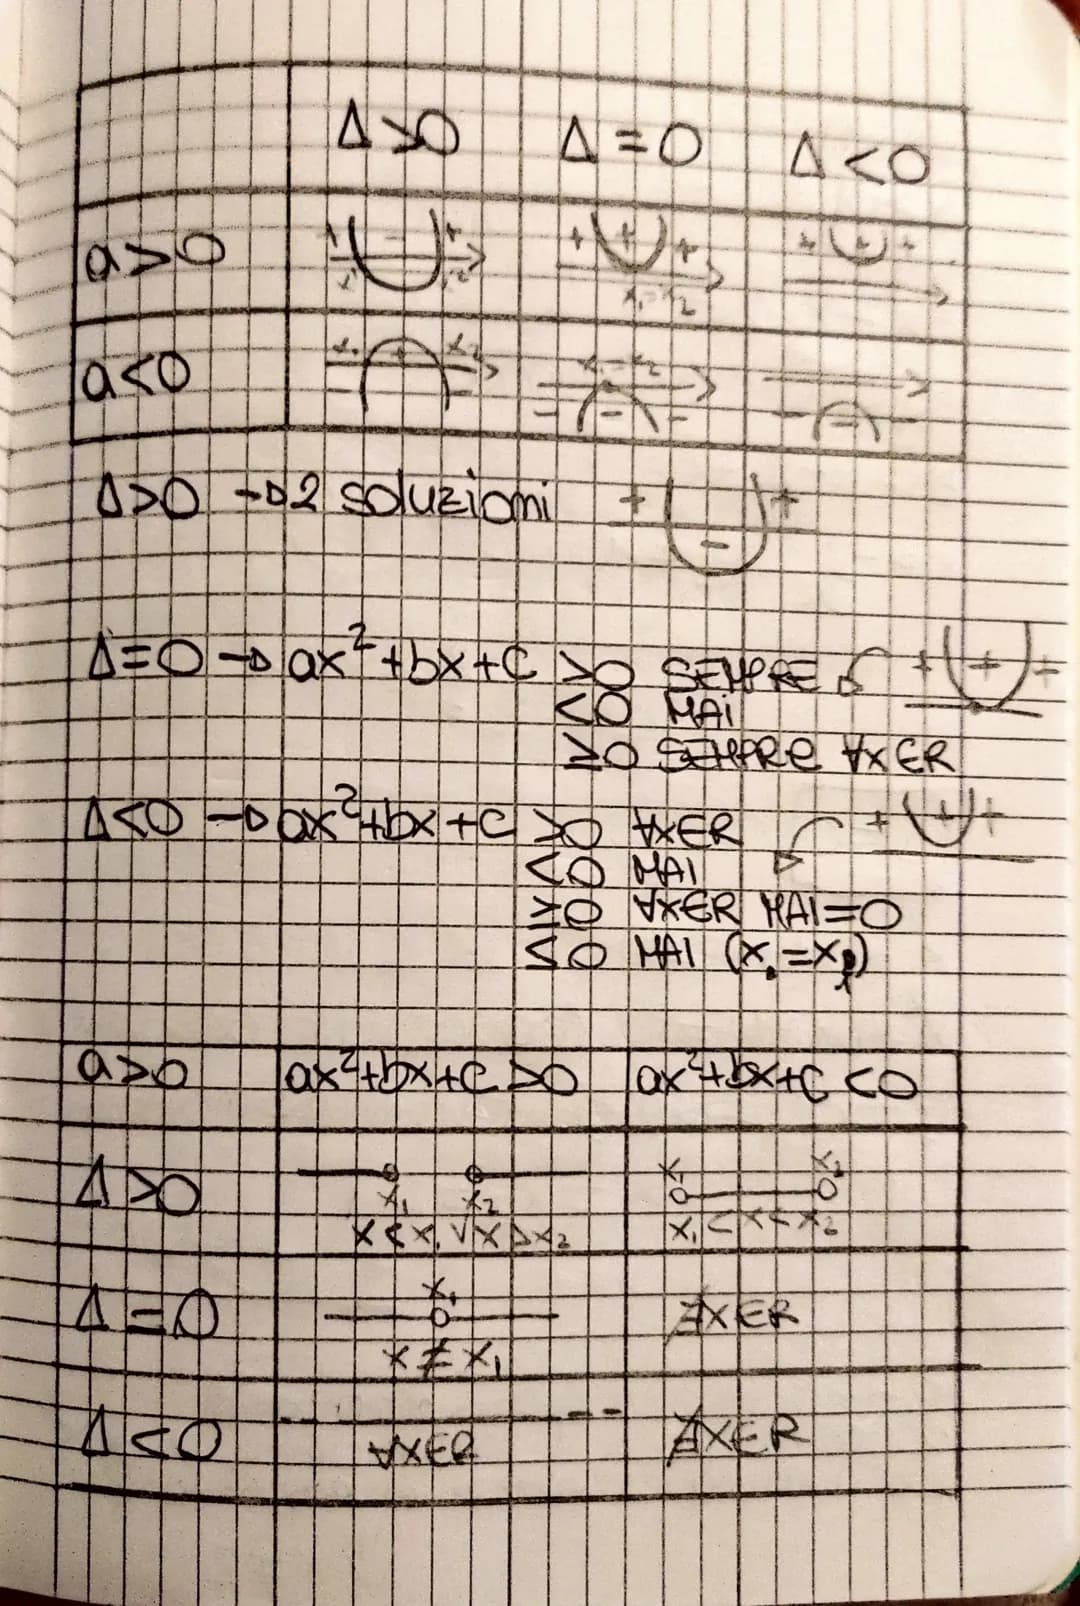 Δ>0 Δ=0 Δ<0
a>0 + - + + + + + + +
x₁ x₂ x₁=x₂
a<0 x₁ + x₂ x₁=x₂
- - - - - - - -
Δ>0 → 2 soluzioni + - +
Δ=0 → ax²+bx+c >0 SEMPRE + + +
<0 MAi
≥0 SEMPRE ∀x∈R
Δ<0 → ax²+bx+c >0 ∀x∈R + + +
<0 MAI
≥0 ∀x∈R MAI=0
≤0 MAI
a>0 ax²+bx+c>0 ax²+bx+c<0
Δ>0 x₁ x₂ x₁ x₂
x<x₁ ∨ x>x₂ x₁<x<x₂
Δ=0 x₁ ∄x∈R
x≠x₁
Δ<0 ∀x∈R ∄x∈R